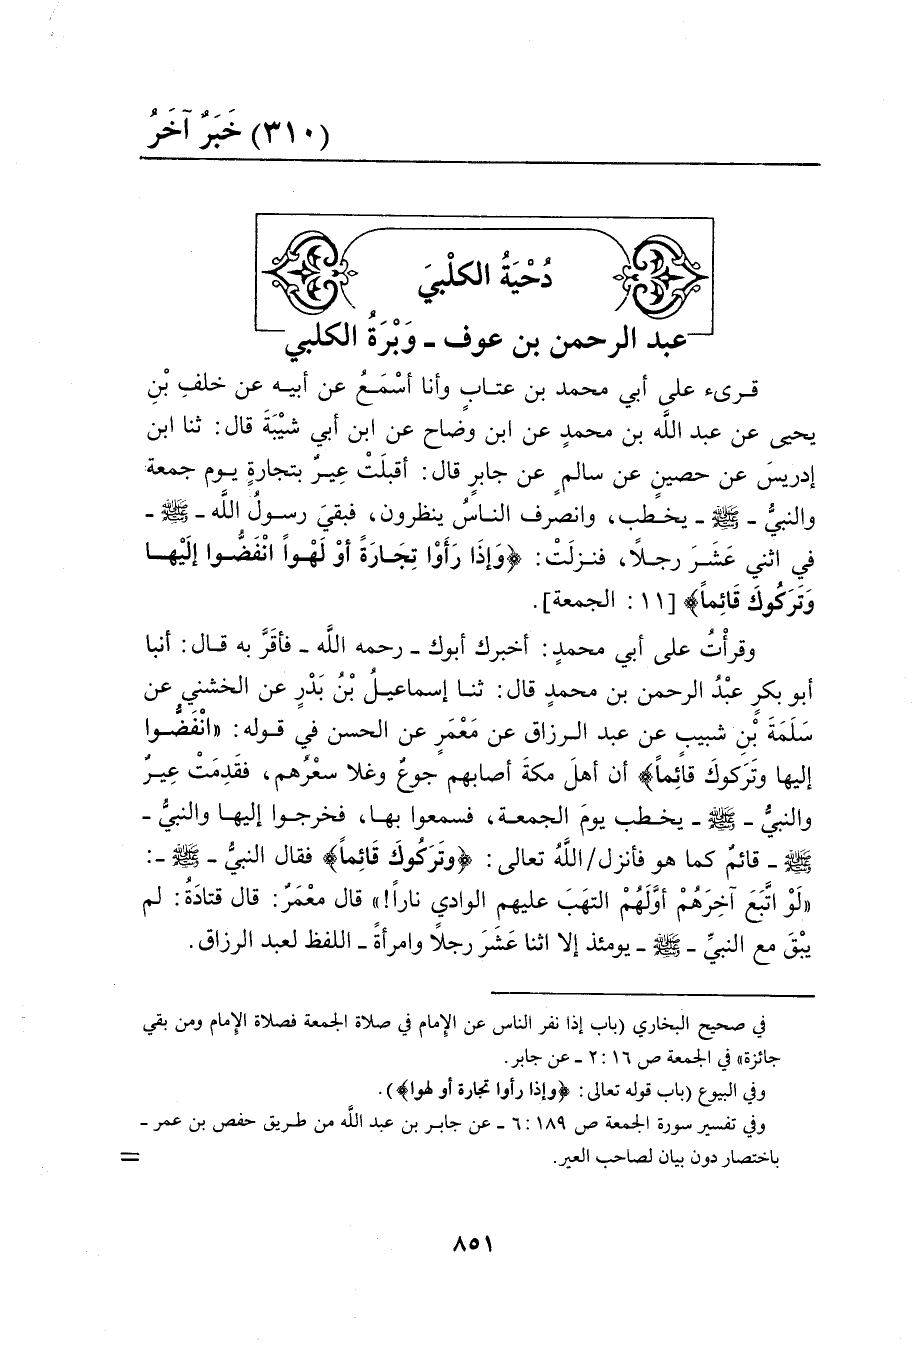 (٣١٠) خَبَرٌ آخَرُ
دُحْيَةُ الكلْبيَ
عبد الرحمن بن عوف ـ وَبْرَةُ الكلبي
قـرىء على أبي محمد بن عتابٍ وأنا أسْمَـعُ عن أبيـه عن خلفِ بْنِ
يحيى عن عبد اللَّه بن محمدٍ عن ابن وضاح عن ابن أبي شيْبَةَ قال: ثنا ابن
إدريسَ عن حصينٍ عن سالمٍ عن جابرٍ قال: أقبلَتْ عِيرٌ بتجارةٍ يـوم جمعة
والنبيُّ ـ ﷺ ـ يخـطب، وانصرف النـاسُ ينظرون، فبقيَ رسـولُ اللَّه ـ ﷺ ـ
في اثني عَشَـرَ رجـلاً، فنـزلَتْ: ﴿وَإذَا رَأَوْا تِجَـارَةً أوْ لَهْـواً انْفَضُّـوا إلَيْهـا
وَتَرَكُوكَ قَائِماً﴾ [١١ : الجمعة].
وقرأْتُ على أبي محمدٍ: أخبرك أبوك ـ رحمه اللَّه ـ فأقَرَّ به قـال: أنبا
أبو بكرٍ عبْدُ الرحمن بن محمدٍ قال: ثنـا إسماعيـلُ بْنُ بَدْرٍ عن الخشني عن
سَلَمَةَ بْنِ شبيبٍ عن عبد الـرزاق عن مَعْمَرٍ عن الحسن في قـوله: «انْفَضُّـوا
إليها وتَرَكوكَ قائِماً﴾ أن أهلَ مكةَ أصابهم جوعٌ وغلا سعْرُهم، فقَدِمَتْ عِيـرٌ
والنبيُّ ـ ﷺ ـ يخـطب يومَ الجمعـة، فسمعوا بهـا، فخرجـوا إليهـا والنبيُّ ـ
ﷺ ـ قائمٌ كما هو فأنزل/اللَّهُ تعالى: ﴿وتَرَكُوكَ قَائِماً﴾ فقال النبيُّ ـ ﷺ ـ:
«لَوْ اتَّبَعَ آخِرَهُمْ أوَّلَهُمْ التهَبَ عليهم الوادي ناراً!» قال معْمَرٌ: قال قتادَةُ: لم
يبْقَ مع النبيِّ ـ ﷺ ـ يومئذ إلا اثنا عَشَرَ رجلاً وامرأةً ـ اللفظ لعبد الرزاق.
في صحيح البخاري (باب إذا نفر الناس عن الإمام في صلاة الجمعة فصلاة الإمام ومن بقي
جائزة» في الجمعة ص ١٦ :٢ ـ عن جابر.
وفي البيوع (باب قوله تعالى: ﴿وإذا رأوا تجارة أو لهوا﴾).
وفي تفسير سورة الجمعة ص ١٨٩ :٦ ـ عن جابـر بن عبد اللَّه من طـريق حفص بن عمر ـ
باختصار دون بيان لصاحب العير. =
٨٥١